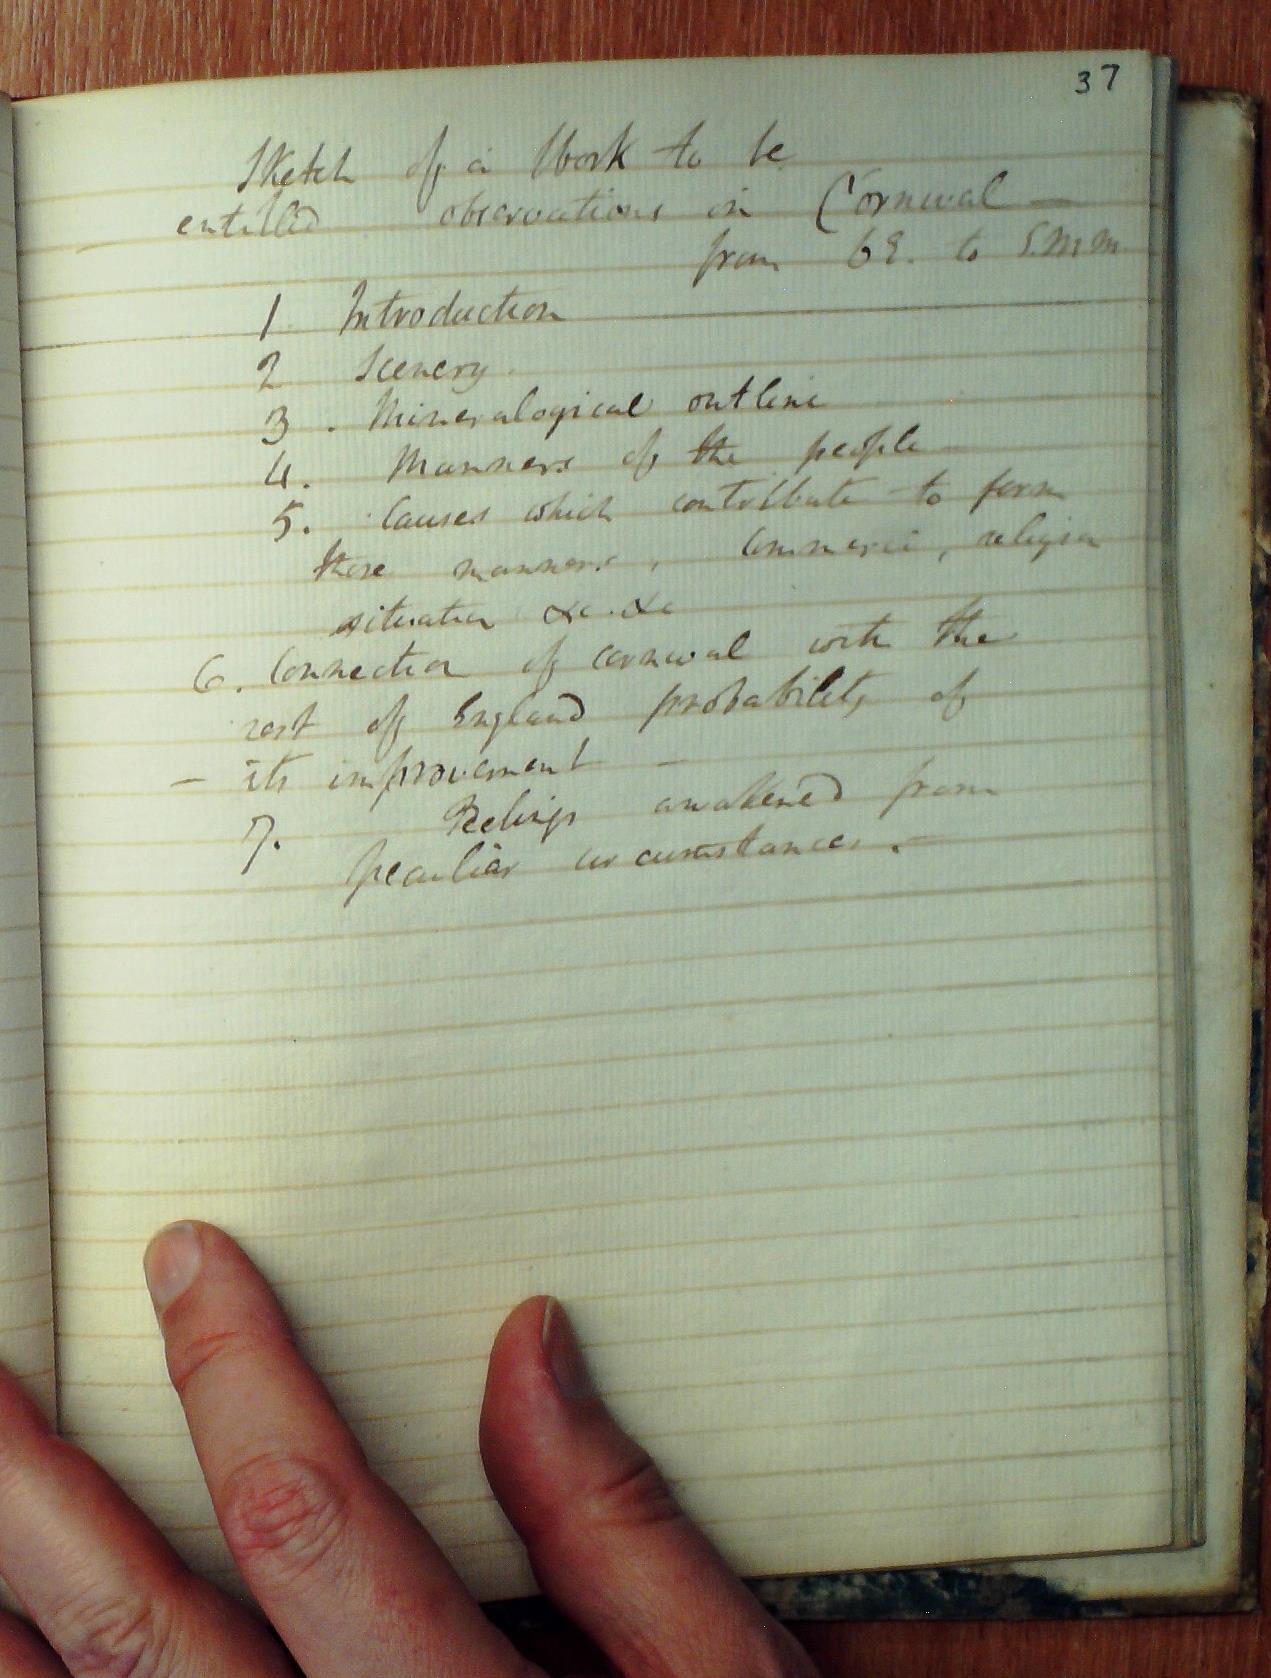 37
Sketch of a Work to be
entitled observations in Cornwal —
from to S.M M
1 Introduction
2 Scenery.
3. Mineralogical outline
4. Manners of the people —
5. Causes which contribute to form
these manners, Commerce, religion
situation &c. &c
6. Connection of cornwal with the
rest of England probability of
— its improvement —
7. Feelings awakened from
peculiar circumstances. —